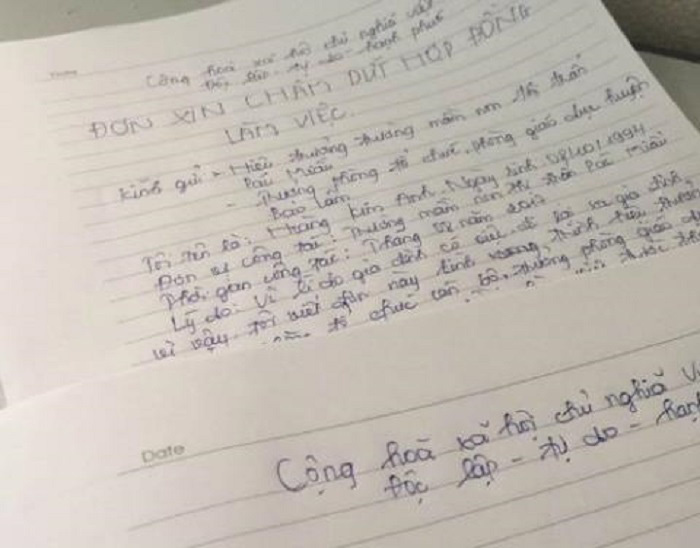 Cộng hoà xã hội chủ nghĩa việt
Độc lập - tự do - hạnh phúc
ĐƠN XIN CHẤM DỨT HỢP ĐỒNG
LÀM VIỆC.
Kính gửi - Hiệu trưởng trường mầm non thị trấn
Pác Miầu
- Trưởng phòng tổ chức, phòng giáo dục huyện
Bảo Lâm
Tôi tên là: Hoàng Kim Anh. Ngày sinh 08/10/1994
Đơn vị công tác: Trường mầm non thị trấn Pác Miầu
Thời gian công tác: Tháng năm
Lý do: Vì lí do gia đình có
vì vậy tôi viết đơn này kính mong, trình hiệu trưởng
tổ chức cán bộ, trưởng phòng giáo
Date
Cộng hoà xã hội chủ nghĩa Vi
Độc lập - tự do - hạnh